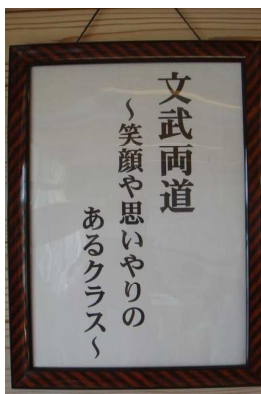 文武両道
～笑顔や思いやりの
あるクラス～